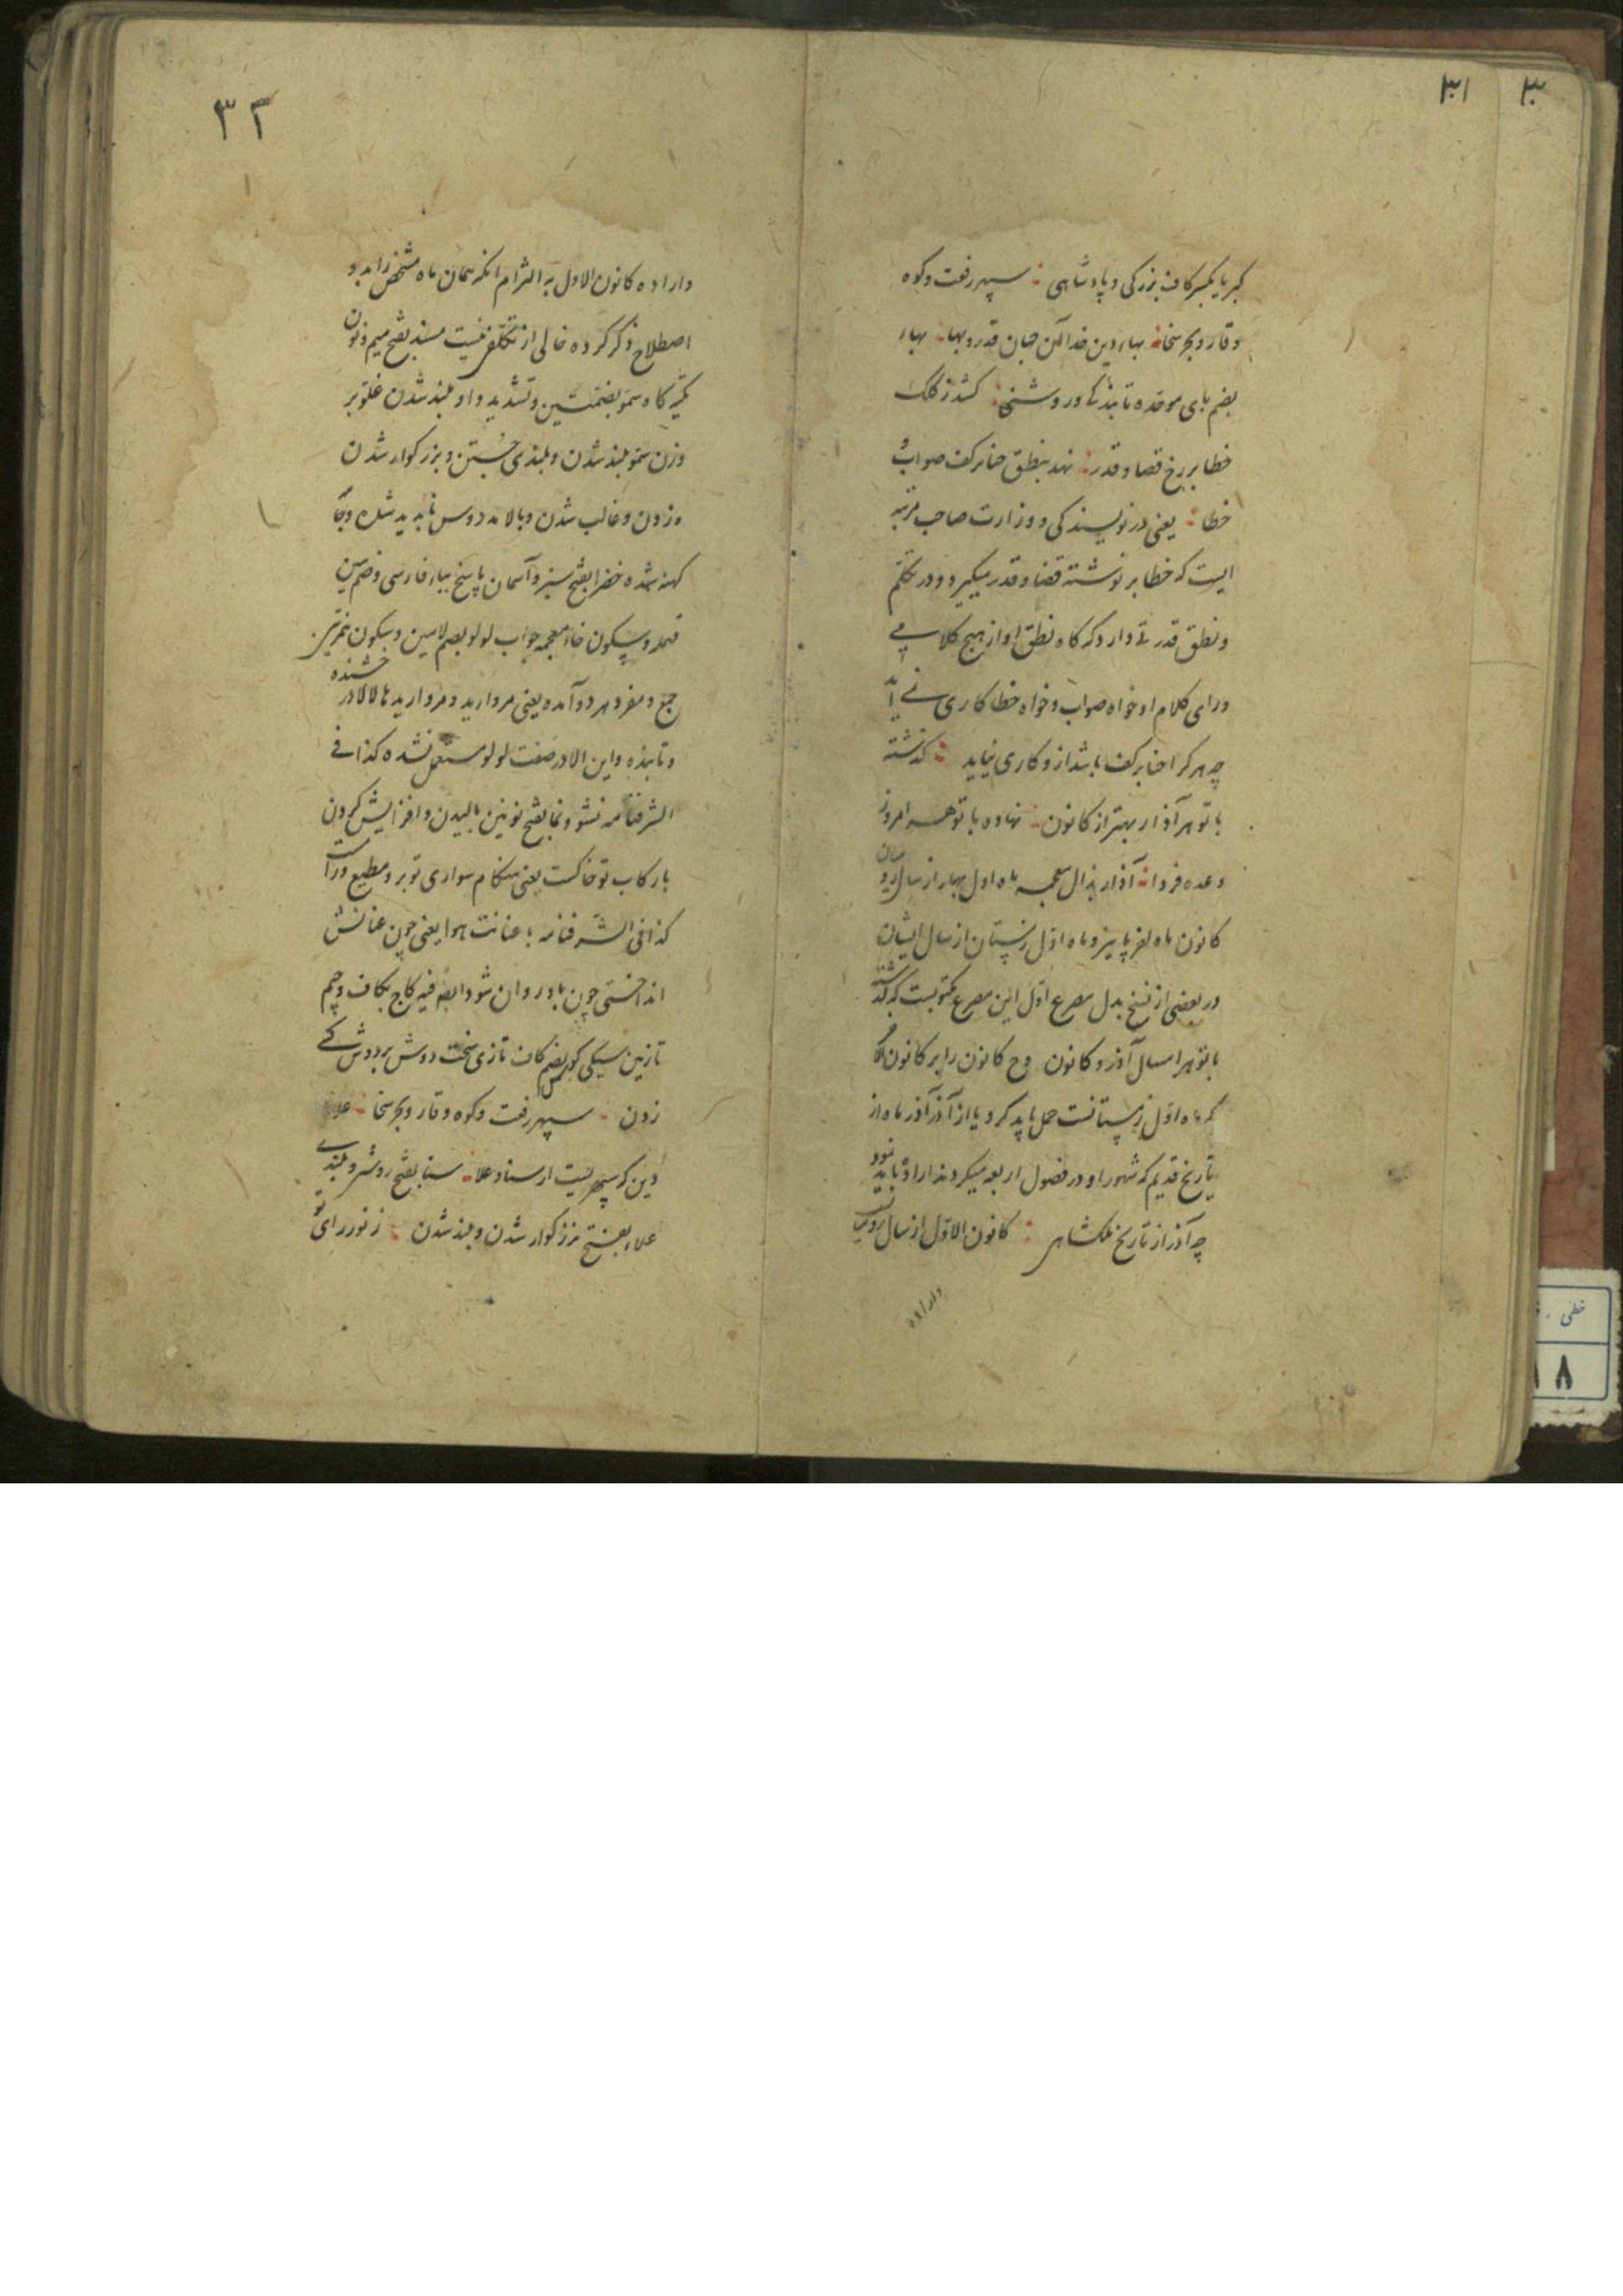 ۳۱
۳
کبریا بکسر کاف بزرکی و پادشاهی سپهر رفعت و کوه
وقار و بحر سخا بهاء دین خدا آن جهان قدر و بها بهاء
بضم بای موحده تابندکی و روشنی کشد ز کلک
خطا بر رخ قضا و قدر نهد بنطق جنابر کف صواب و
خطا یعنی در نویسندکی و وزارت صاحب مرتبه
ایست که خطا بر نوشته قضا و قدر میکیرد و در تکلم
و نطق قدرتی دارد که کاه نطق او از هیچ کلامی
ورای کلام او خواه صواب و خواه خطا کاری نمی آید
چه هر کرا حنا بر کف باشد از و کاری نیاید کذشته
با تو هر آذار بهتر از کانون نهاده با تو همه امروز
وعده فردا آذار بذال معجمه ماه اول بهار از سال رومیان
کانون ماه آخر پاییز و ماه اول زمستان از سال ایشان
در بعضی از نسخ بدل مصرع اول این مصرع مکتوبست که کذشته
با تو هر امسال آذر و کانون وح کانون را بر کانون الآخر
که ماه اول زمستانست حمل باید کرد و یا از آذر آذر ماه از
تاریخ قدیم که شهور او در فصول اربعه میکردند اراده باید نمود
چه آذر از تاریخ ملکشاهی کانون الاول از سال رومی
واراده
۳۲
واراده کانون الاول به التزام آنکه همان ماه مشخص را بد و
اصطلاح ذکر کرده خالی از تکلفی نیست مسند بفتح میم و نون
تکیه کاه و سمو بضمتین و تشدید واو بلند شدن علو بر
وزن سمو بلند شدن و بلندی جستن و بزرکوار شدن
وزدن و غالب شدن و بالا مدروس ناپدید شده و جای
کهنه شده خضرا بفتح سبز و آسمان پاسخ بباء فارسی و ضم سین
مهمله و سکون خاء معجمه جواب لولو بضم لامین و سکون همزتین
جمع و مفرد هر دو آمده یعنی مروارید و مرواریدها لالا درخشنده
و تابنده و این لالا در صفت لولو مستعمل نشده کذا فی
الشرفنامه نشو و نما بفتح نونین بالیدن و افزایش کردن
با رکاب تو خاکست یعنی هنکام سواری تو برد و مطیع ورآست
کذا فی الشرفنامه با عنانت هوا یعنی چون عنانش
انداختی چون باد روان شود ایضا فیه کاج بکاف و جیم
تازیین سیکی کوس بضم کاف تازی سخت دوش بر دوش کسی
زدن سپهر رفت و کوه وقار و بحر سخا علاء
دین که سپهریست از سنا و علا سنا بفتح روشنی و بلندی
علاء بفتح بزرکوار شدن و بلند شدن ز نور رای تو
خطی
۱۸